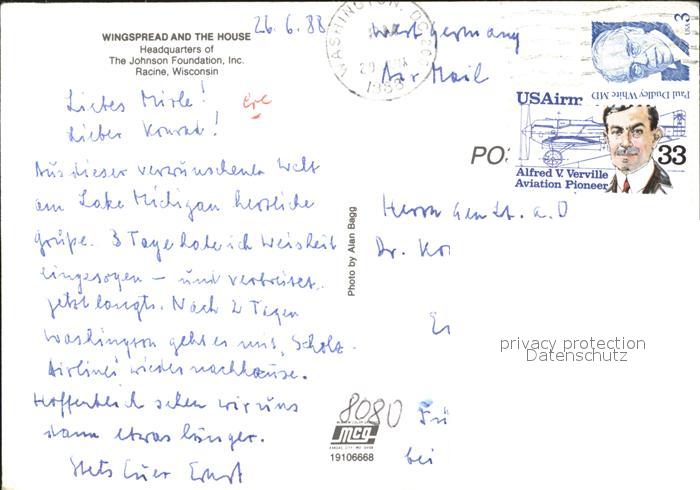 26.6.88
WINGSPREAD AND THE HOUSE
Headquarters of
The Johnson Foundation, Inc.
Racine, Wisconsin
WASHINGTON, DC
1988
West Germany
Air Mail
Paul Dudley White MD
USA 3
USAirm
33
Alfred V. Verville
Aviation Pioneer
PO
Liebes Mirle!
Lieber Konrad!
Aus dieser verwunschenen Welt
am Lake Michigan herzliche
Grüße. 3 Tage habe ich Weisheit
eingesogen – und verbreitet.
Jetzt langts. Nach 2 Tagen
Washington geht es mit
Airlines wieder nachhause.
Hoffentlich sehen wir uns
dann etwas länger.
Stets Euer Ernst
Photo by Alan Bagg
Herrn Gen Lt. a. D
Dr. Ko
privacy protection
Datenschutz
8080
mcg
19106668
bei